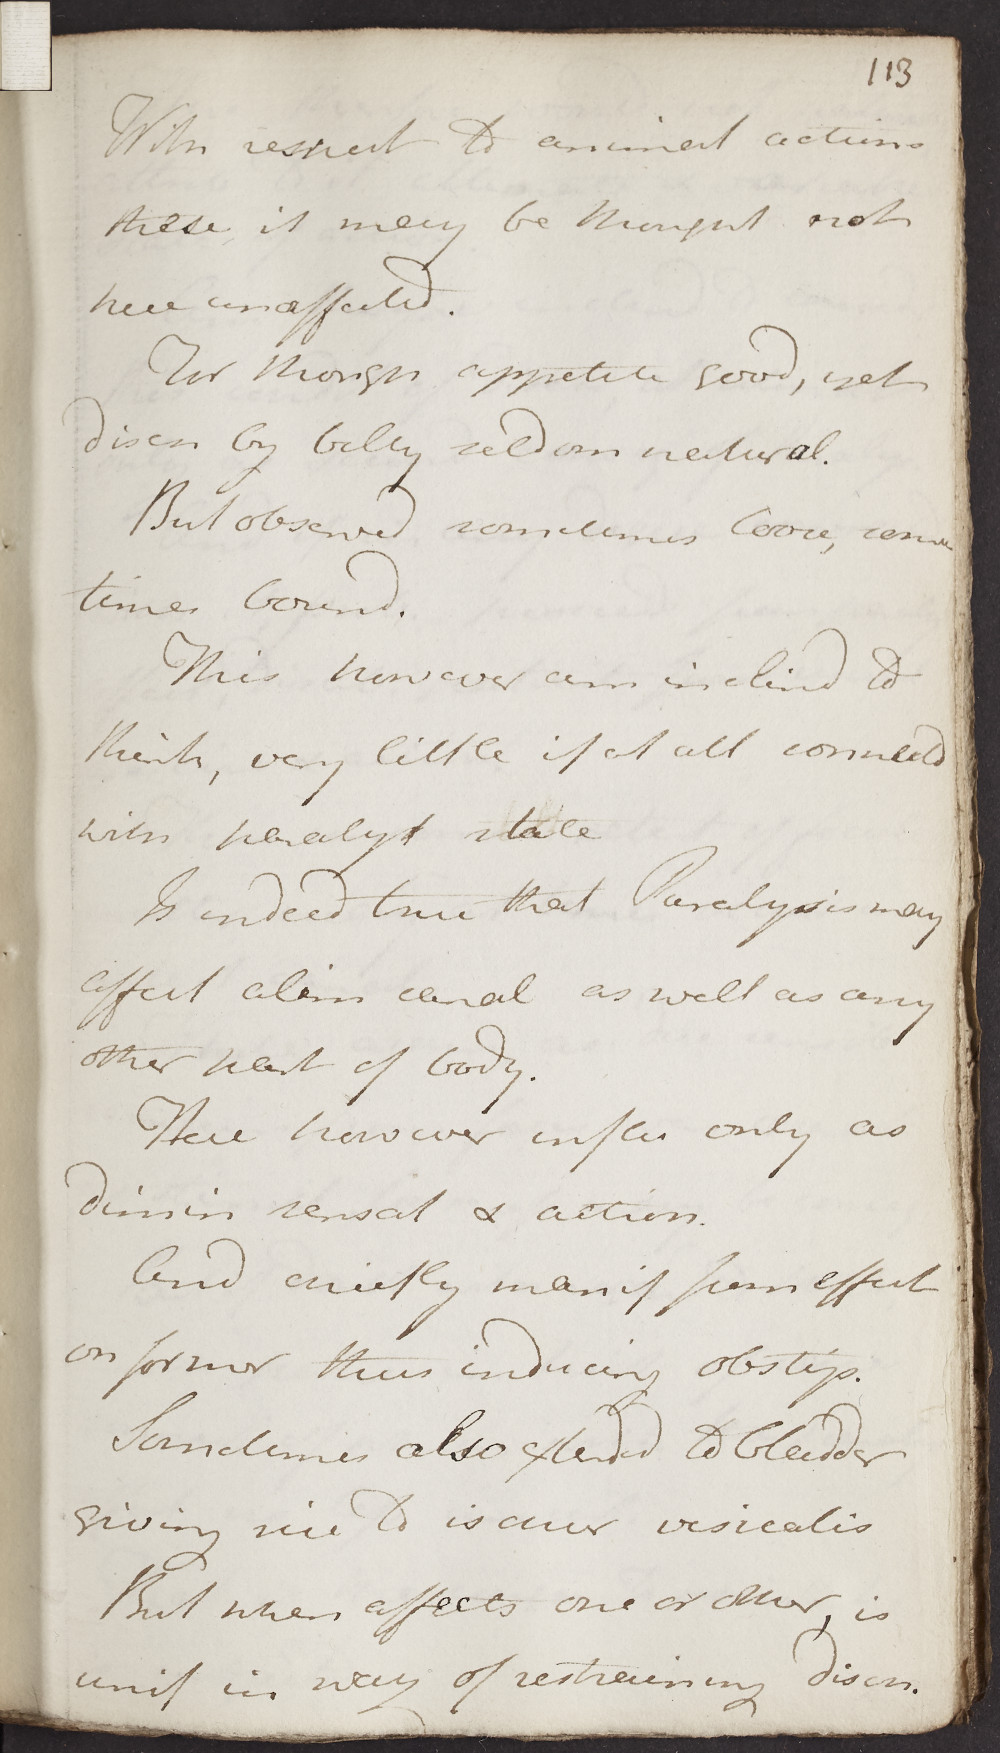 113
With respect to animal actions
these it may be thought not
here unaffected.
For though appetite good, yet
disch by belly seldom natural.
But observed sometimes loose, some
times bound.
This however am inclind to
think, very little if at all connectd
with paralyt state
Is indeed true that Paralysis may
affect alim canal as well as any
other part of body.
Here however influ only as
dimin sensat & action.
And chiefly manif from effect
on former thus inducing obstip.
Sometimes also extended to bladder
giving rise to ischur vesicalis
But when affects one or other, is
unif in way of restraining disch.